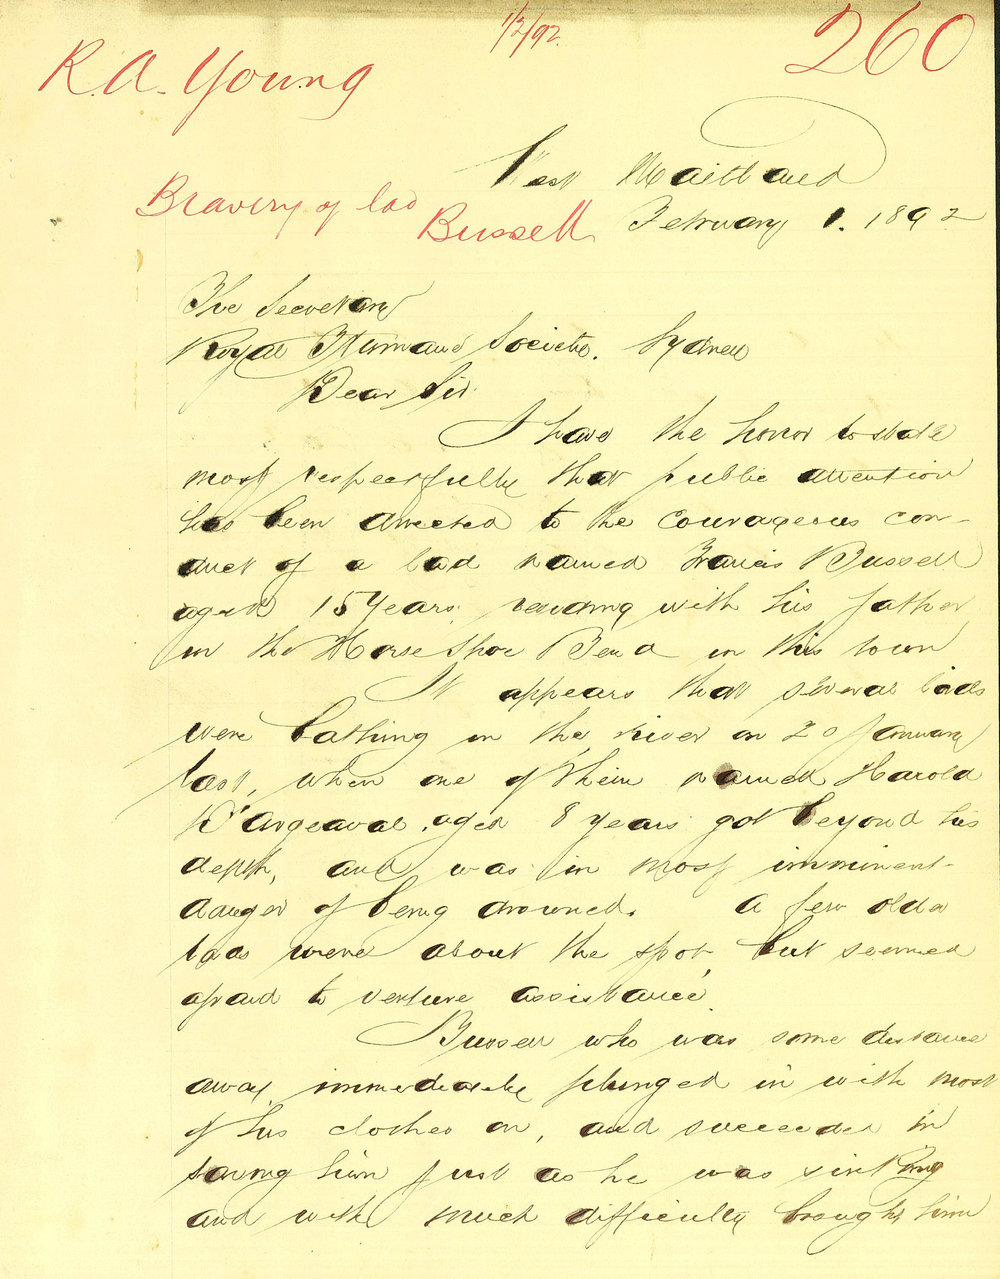 1/2/92.
260
R. A. Young
West Maitland
Bravery of lad
Bussell
February 1. 1892
The Secretary
Royal Humane Society. Sydney
Dear Sir
I have the honor to state
most respectfully that public attention
has been directed to the courageous con-
duct of a lad named Francis Bussell
aged 15 years residing with his father
in the Horse Shoe Bend in this town
It appears that several lads
were bathing in the river on 20 January
last, when one of them named Harold
D'Argeaval aged 8 years got beyond his
depth, and was in most imminent
danger of being drowned. A few older
lads were about the spot, but seemed
afraid to venture assistance
Bussell who was some distance
away immediately plunged in with most
of his clothes on, and succeeded in
saving him just as he was sinking
and with much difficulty brought him